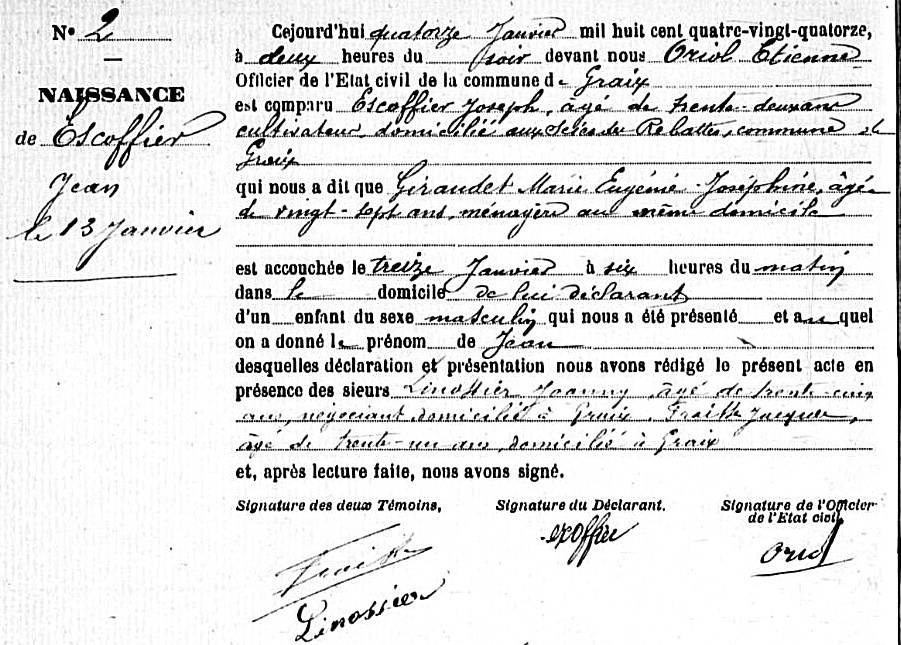 N° 2
NAISSANCE
de Escoffier
Jean
le 13 Janvier
Cejourd'hui quatorze Janvier mil huit cent quatre-vingt-quatorze,
à deux heures du soir devant nous Oriol Etienne
Officier de l'Etat civil de la commune de Graix
est comparu Escoffier Joseph, agé de trente-deux ans
cultivateur, domicilié aux commune de
Graix
qui nous a dit que Giraudet Marie Eugénie-Joséphine, âgée
de vingt-sept ans, ménagère au même domicile
est accouchée le treize Janvier à six heures du matin
dans le domicile de lui déclarant
d'un enfant du sexe masculin qui nous a été présenté et auquel
on a donné le prénom de Jean
desquelles déclaration et présentation nous avons rédigé le présent acte en
présence des sieurs Linossier Joanny, âgé de trente-cinq
ans, négociant, domicilié à Graix, Jacques,
âgé de trente-un ans, domicilié à Graix
et, après lecture faite, nous avons signé.
Signature des deux Témoins,
Signature du Déclarant.
Signature de l'Officier
de l'Etat civil,
Linossier
Oriol